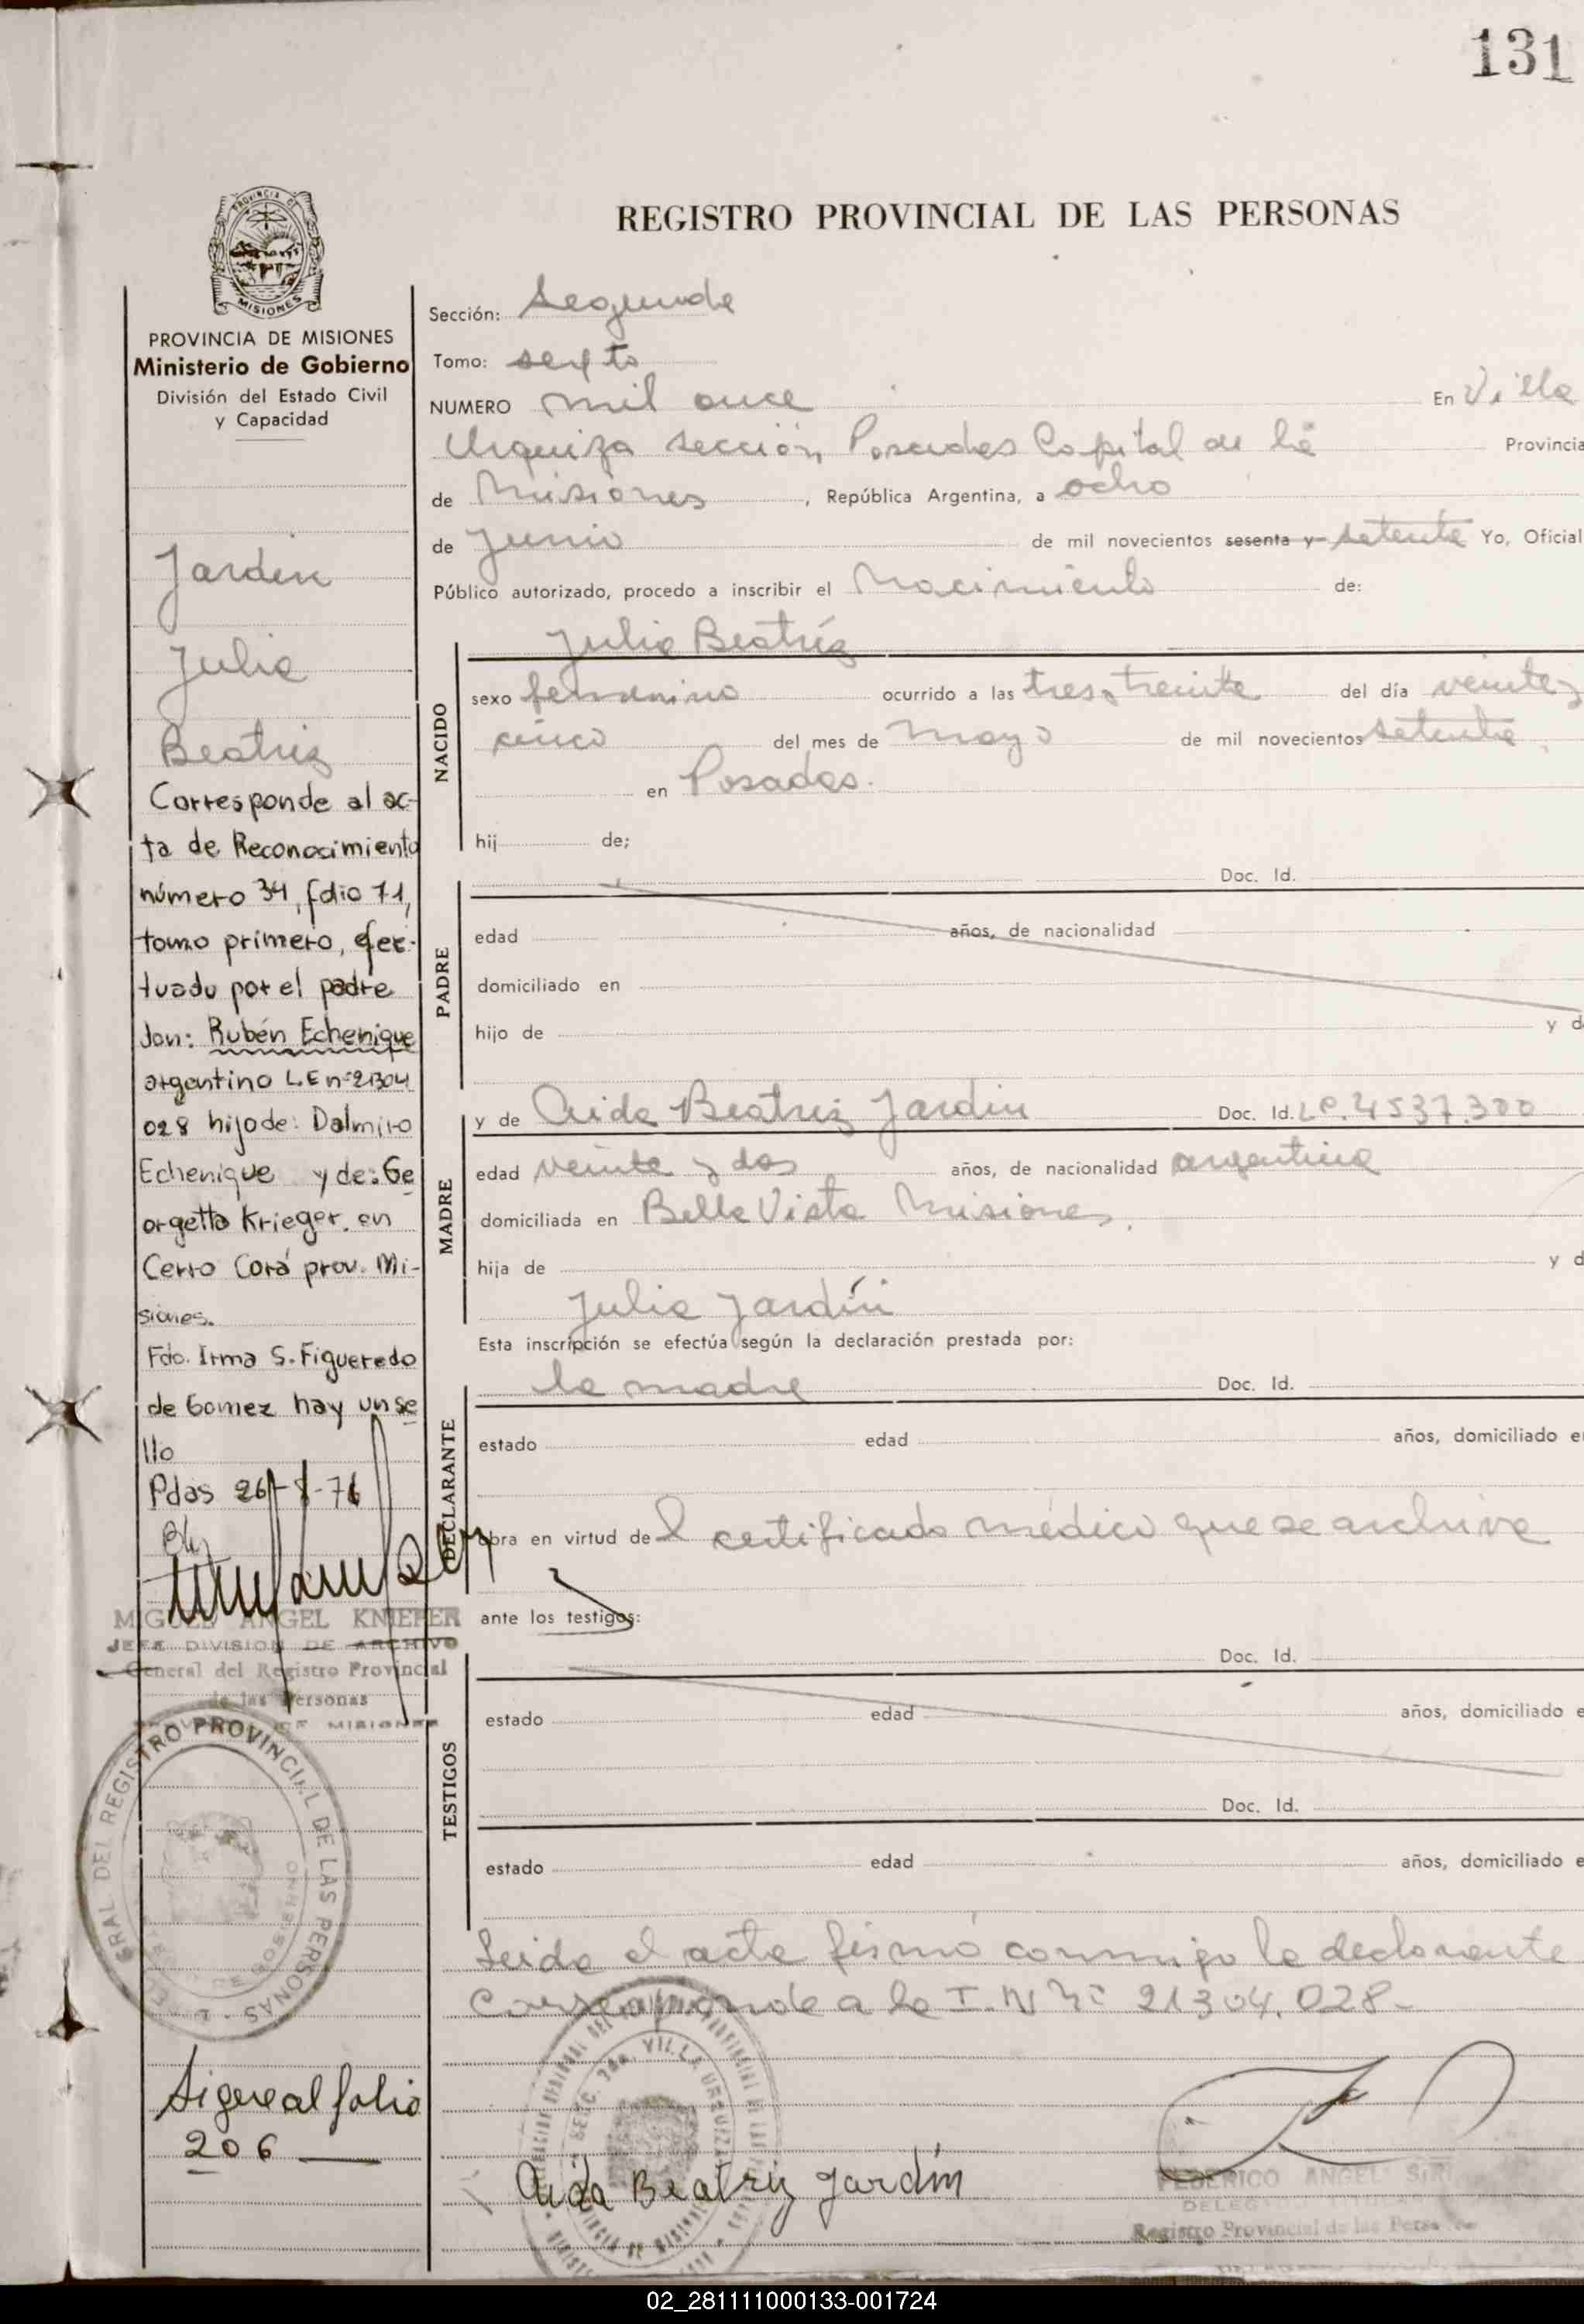 131
REGISTRO PROVINCIAL DE LAS PERSONAS
PROVINCIA DE MISIONES
PROVINCIA DE MISIONES
Ministerio de Gobierno
División del Estado Civil
y Capacidad
Jardin
Julia
Beatriz
Corresponde al ac-
ta de Reconocimiento
número 34, folio 71,
tomo primero, efec-
tuado por el padre
Don: Rubén Echenique
argentino L.E nº 21304
028 hijo de: Dalmiro
Echenique y de: Ge
orgetta Krieger. en
Cerro Corá prov. Mi-
siones.
Fdo. Irma S. Figueredo
de Gomez hay un se
llo
Pdas 26-8-76
MIGUEL ANGEL KNIEFER
JEFE DIVISION DE ARCHIVO
General del Registro Provincial
de las Personas
PROVINCIA DE MISIONES
GRAL DEL REGISTRO PROVINCIAL DE LAS PERSONAS
Sigue al folio
206
Sección: Segunda
Tomo: sexto
NUMERO mil once En Villa
Urquiza sección Posadas Capital de la Provincia
de Misiones, República Argentina, a ocho
de Junio de mil novecientos sesenta y setenta Yo, Oficial
Público autorizado, procedo a inscribir el Nacimiento de:
NACIDO
Julia Beatríz
sexo femenino ocurrido a las tres y treinta del día veinte y
cinco del mes de Mayo de mil novecientos setenta.
en Posadas.
hij de;
PADRE
Doc. Id.
edad años, de nacionalidad
domiciliado en
hijo de y d
MADRE
y de Aida Beatriz Jardin Doc. Id. LC. 4537.300
edad veinte y dos años, de nacionalidad argentina
domiciliada en Bella Vista Misiones.
hija de y d
Julia Jardín
Esta inscripción se efectúa según la declaración prestada por:
DECLARANTE
la madre Doc. Id.
estado edad años, domiciliado e
obra en virtud de l certificado médico que se archiva
ante los testigos:
TESTIGOS
Doc. Id.
estado edad años, domiciliado e
Doc. Id.
estado edad años, domiciliado e
Leida el acta firmó conmigo la declarante
Corresponde a la I. N Nº 21304.028-
SECC. 2da. VILLA URQUIZA
Aida Beatriz Jardín
FEDERICO ANGEL
Registro Provincial de las Personas
02_281111000133-001724